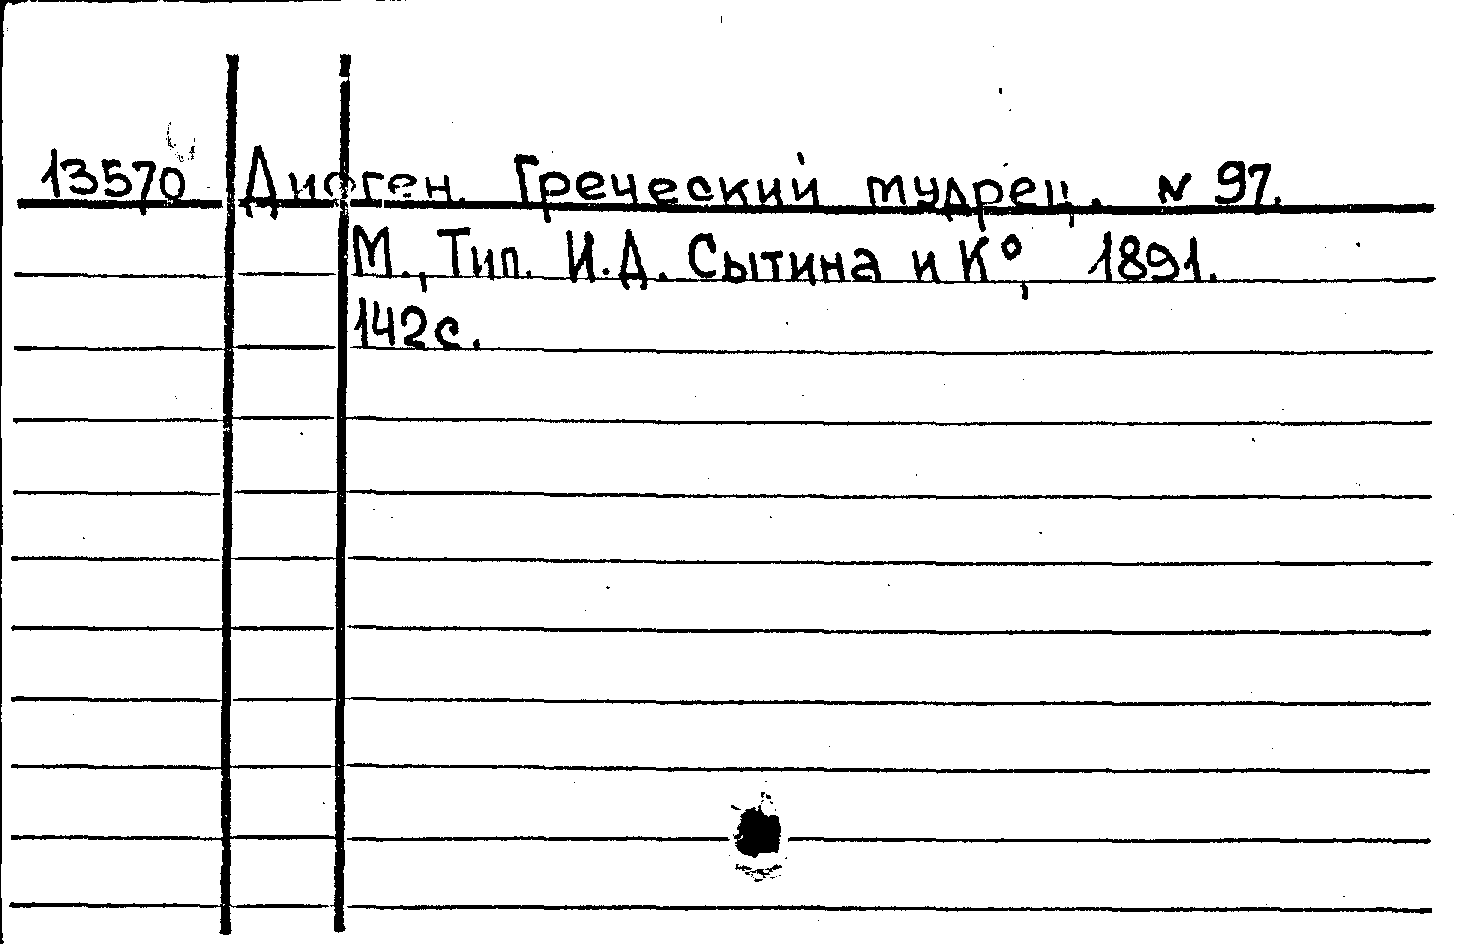 13570 Диоген. Греческий мудрец. N 97.
М., Тип. И.Д. Сытина и К°, 1891.
142с.